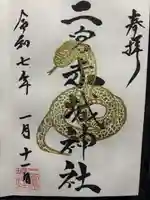 奉拝
二宮赤城神社
令和七年 一月十一日